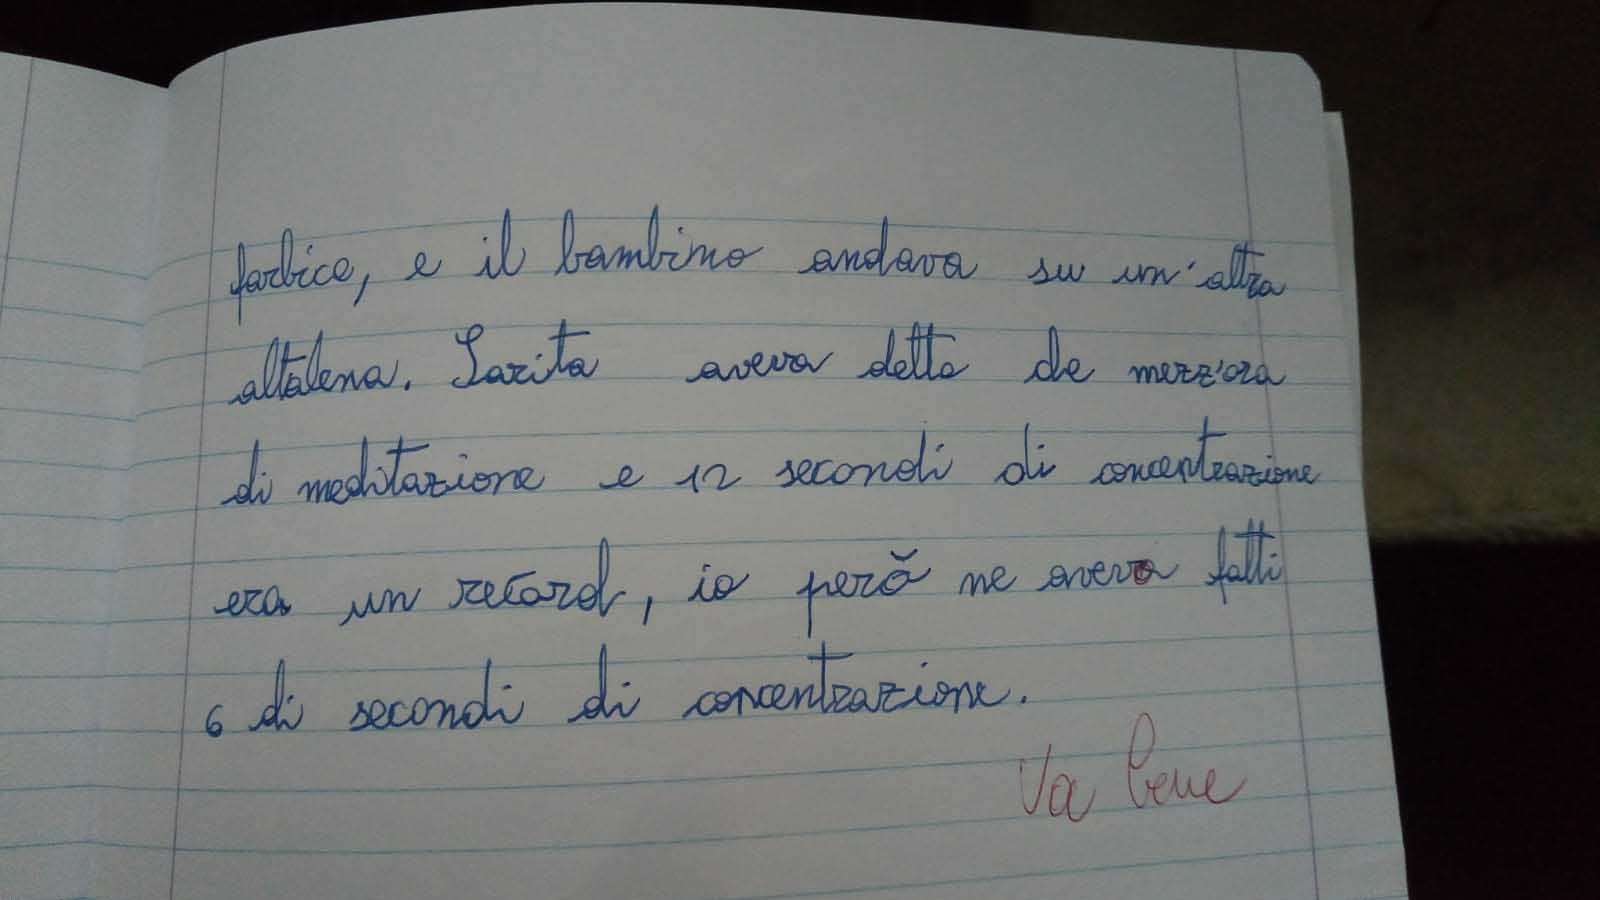 forbice, e il bambino andava su un'altra
altalena. Sarita aveva detto che mezz'ora
di meditazione e 12 secondi di concentrazione
era un record, io però ne avevo fatti
6 di secondi di concentrazione.
Va bene